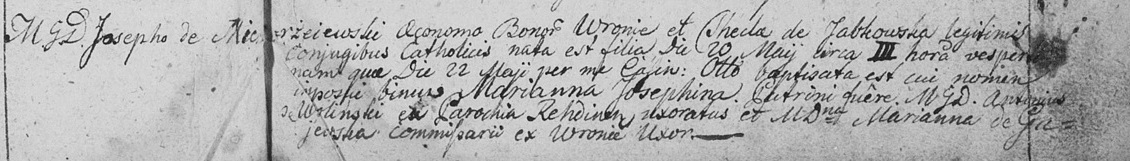 MGD. Josepho de Mierzeiewski Œconomo Bonor Wronie et Thecla de Jabkowska legitimis
Conjugibus Catholicis nata est filia Die 20 Maij circa III hora vesper
nam quæ Die 22 Maij per me Cajin: Otto baptisata est cui nomen
imposui binum Marianna Josephina. Patrini fuêre. MGD. Antonius
de Wolinski ex Parochia Rehdinen uxoratus et MDna Marianna de Ga=
jewska Commissarii ex Wronie Uxor.